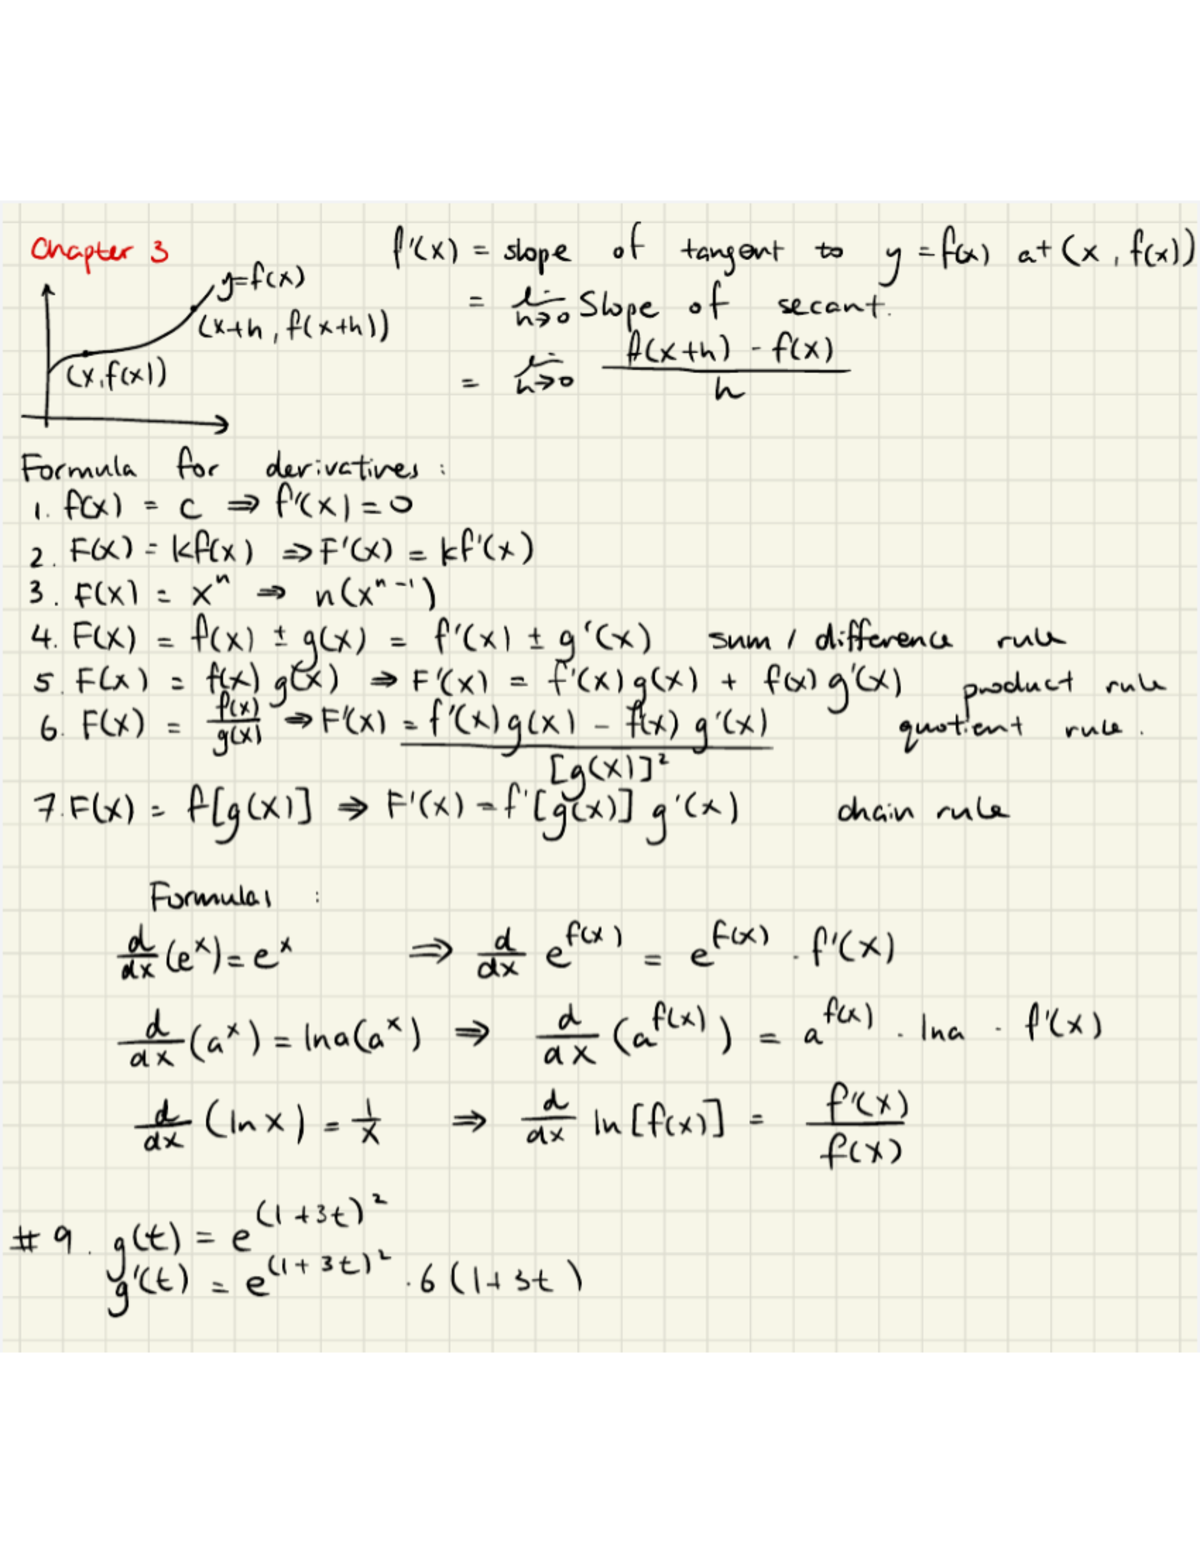 Chapter 3
y=f(x)
(x+h, f(x+h))
(x, f(x))
f'(x) = slope of tangent to y = f(x) at (x, f(x))
= lim h→0 Slope of secant.
= lim h→0 f(x+h) - f(x) / h
Formula for derivatives :
1. f(x) = c ⇒ f'(x) = 0
2. F(x) = kf(x) ⇒ F'(x) = kf'(x)
3. F(x) = xⁿ ⇒ n(xⁿ⁻¹)
4. F(x) = f(x) ± g(x) = f'(x) ± g'(x) sum / difference rule
5. F(x) = f(x) g(x) ⇒ F'(x) = f'(x) g(x) + f(x) g'(x) product rule
6. F(x) = f(x)/g(x) ⇒ F'(x) = f'(x) g(x) - f(x) g'(x) / [g(x)]² quotient rule.
7. F(x) = f[g(x)] ⇒ F'(x) = f'[g(x)] g'(x) chain rule
Formulas :
d/dx (e^x) = e^x ⇒ d/dx e^f(x) = e^f(x) · f'(x)
d/dx (a^x) = ln a (a^x) ⇒ d/dx (a^f(x)) = a^f(x) · ln a · f'(x)
d/dx (ln x) = 1/x ⇒ d/dx ln [f(x)] = f'(x)/f(x)
# 9. g(t) = e^(1+3t)²
g'(t) = e^(1+3t)² · 6 (1+3t)